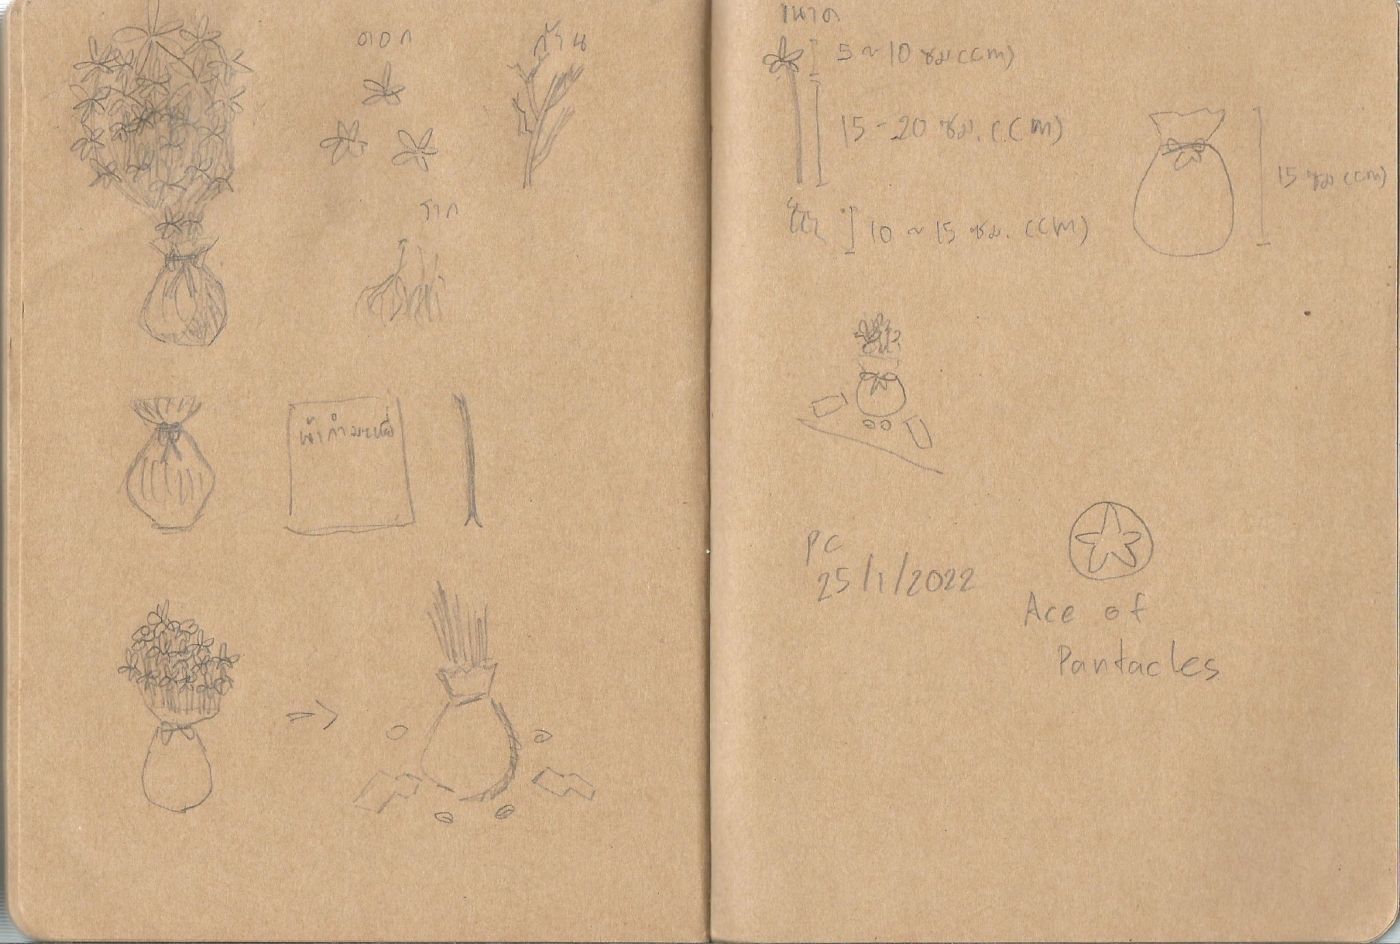 ดอก
ก้าน
ราก
ผ้ากำมะหยี่
ขนาด
5 ~ 10 ซม (cm)
15 - 20 ซม. (cm)
15 ซม (cm)
10 ~ 15 ซม. (cm)
PC
25/1/2022
Ace of
Pantacles